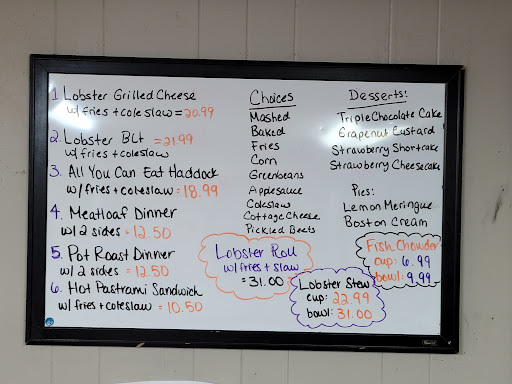 1. Lobster Grilled Cheese
w/ fries + coleslaw = 20.99
2. Lobster BLT = 21.99
w/ fries + coleslaw
3. All You Can Eat Haddock
w/ fries + coleslaw = 18.99
4. Meatloaf Dinner
w/ 2 sides = 12.50
5. Pot Roast Dinner
w/ 2 sides = 12.50
6. Hot Pastrami Sandwich
w/ fries + coleslaw = 10.50
Choices
Mashed
Baked
Fries
Corn
Greenbeans
Applesauce
Coleslaw
Cottage Cheese
Pickled Beets
Desserts:
Triple Chocolate Cake
Grapenut Custard
Strawberry Shortcake
Strawberry Cheesecake
Pies:
Lemon Meringue
Boston Cream
Lobster Roll
w/ fries + slaw
= 31.00
Lobster Stew
cup: 22.99
bowl: 31.00
Fish Chowder
cup: 6.99
bowl: 9.99